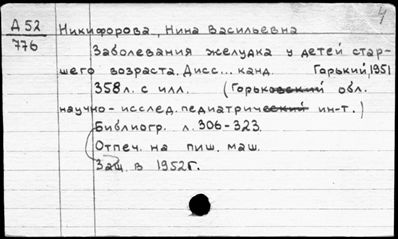 4
Д 52
776
Никифорова, Нина Васильевна
Заболевания желудка у детей стар-
шего возраста. Дисс... канд. Горький, 1951
358 л. с илл. (Горьковский обл.
научно-исслед. педиатрический ин-т.)
Библиогр. л. 306-323.
Отпеч. на пиш. маш.
Защ. в 1952г.